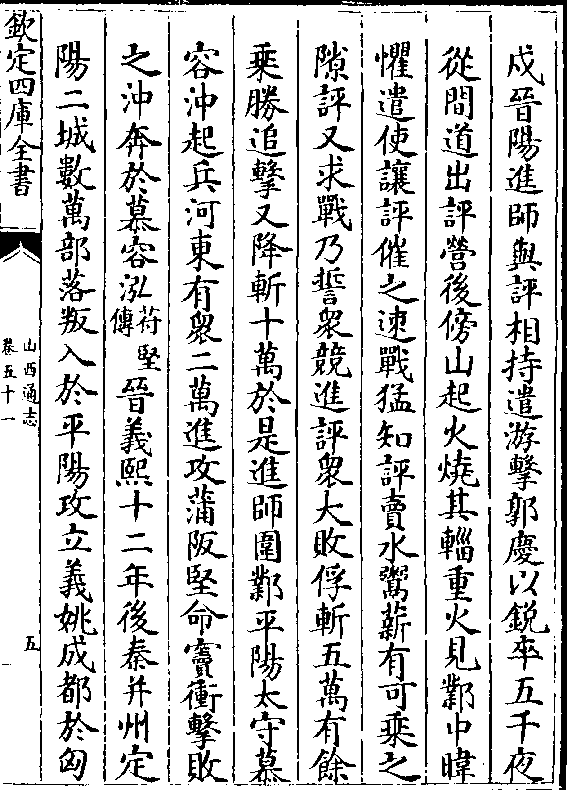 戍晉陽進師與評相持遣游擊郭慶以銳卒五千夜
從間道出評營後傍山起火燒其輜重火見鄴中暐
懼遣使讓評催之速戰猛知評賣水鬻薪有可乗之
隙評又求戰乃誓衆競進評衆大敗俘斬五萬有餘
乗勝追擊又降斬十萬於是進師圍鄴平陽太守慕
容沖起兵河東有衆二萬進攻蒲阪堅命竇衝擊敗
之沖奔於慕容泓苻堅傳晉義熙十二年後秦并州定
陽二城數萬部落叛入於平陽攻立義姚成都於匈
欽定四庫全書
山西通志
卷五十一
五